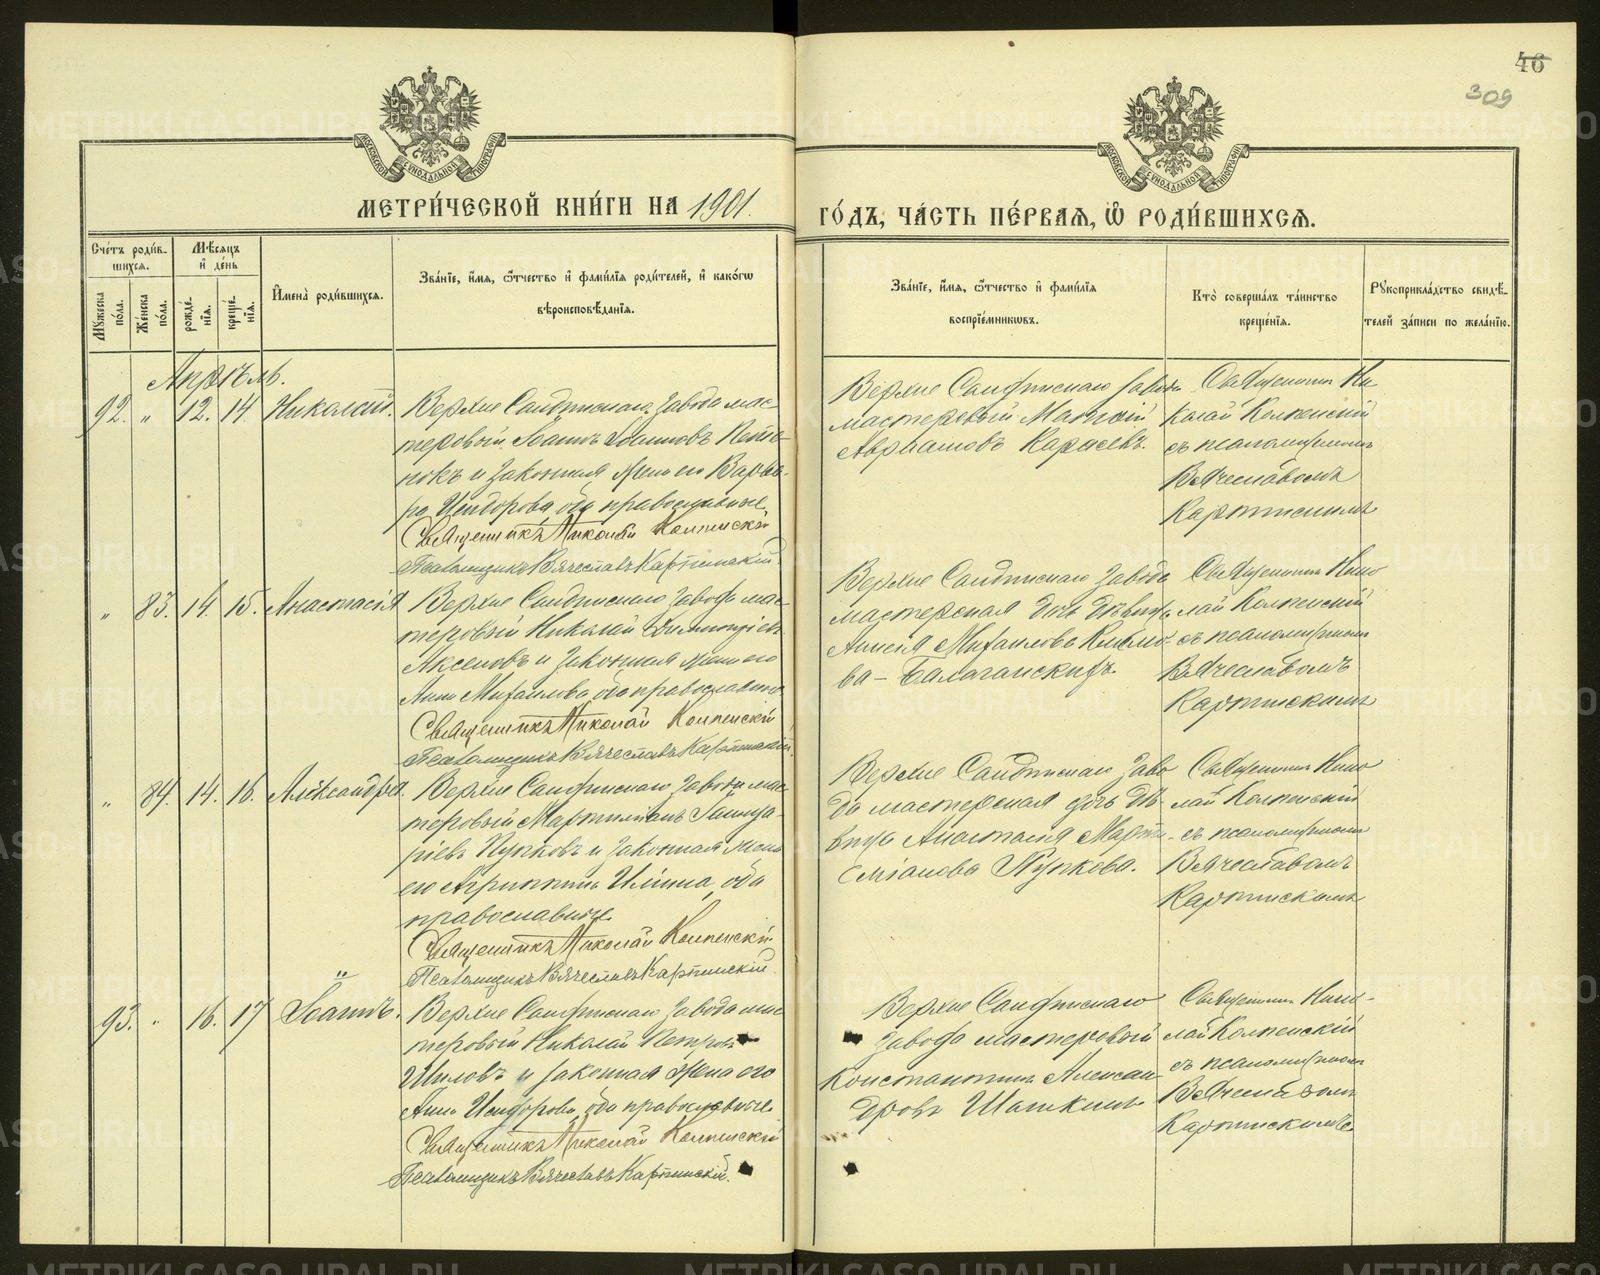 46
309
МЕТРИ́ЧЕСКОЙ КНИ́ГИ НА 1901.
ГО́ДЪ, ЧА́СТЬ ПЕ́РВАѦ, Ѡ҆ РОДИ́ВШИХСѦ.
Сче́тъ роди́в-
шихсѧ.
Мꙋжеска по́ла.
Же́нска по́ла.
Мѣ́сѧцъ
и҆ де́нь
рожде́-
нїѧ.
креще́-
нїѧ.
И҆мена̀ роди́вшихсѧ.
Зва́нїе, и҆́мѧ, ѻ҆́тчество и҆ фами́лїѧ роди́телей, и҆ како́гѡ
вѣроисповѣ́данїѧ.
Зва́нїе, и҆́мѧ, ѻ҆́тчество и҆ фами́лїѧ
воспрїе́мникѡвъ.
Кто̀ соверша́лъ та́инство
креще́нїѧ.
Рꙋкоприкла́дство свидѣ́-
телей за́писи по жела́нїю.
Апрѣль.
92. " 12. 14. Николай.
Верхне Салдинскаго завода мас-
теровый Іоаннъ Іоанновъ
и законная жена его Варва-
ра Исидорова, оба православные
Священникъ Николай Колпенскій
Псаломщикъ Вячеславъ Карпинскій
Верхне Салдинскаго завода
мастеровый
Авраамовъ Карасевъ.
Священникъ Ни-
колай Колпенскій
съ псаломщикомъ
Вячеславомъ
Карпинскимъ
" 83. 14. 15. Анастасія
Верхне Салдинскаго завода мас-
теровый Николай Димитріевъ
Аксеновъ и законная жена его
Анна Михаилова, оба православные
Священникъ Николай Колпенскій
Псаломщикъ Вячеславъ Карпинскій
Верхне Салдинскаго завода
мастерская дочь дѣвица
Михаилова
ва-Балаганскихъ.
Священникъ Нико-
лай Колпенскій
съ псаломщикомъ
Вячеславомъ
Карпинскимъ
" 84. 14. 16. Александра.
Верхне Салдинскаго завода мас-
теровый Мартиміанъ
Пупковъ и законная жена
его Агриппина Ильина, оба
православные
Священникъ Николай Колпенскій
Псаломщикъ Вячеславъ Карпинскій
Верхне Салдинскаго заво
да мастерская дочь дѣ-
вица Анастасія Марти-
міанова Пупкова.
Священникъ Нико
лай Колпенскій
съ псаломщикомъ
Вячеславомъ
Карпинскимъ
93. " 16. 17 Іоаннъ.
Верхне Салдинскаго завода мас
теровый Николай Петровъ
Шиловъ и законная жена его
Анна Исидорова, оба православные
Священникъ Николай Колпенскій
Псаломщикъ Вячеславъ Карпинскій.
Верхне Салдинскаго
завода мастеровый
Константинъ Алексан-
дровъ Шашкинъ
Священникъ Нико-
лай Колпенскій
съ псаломщикомъ
Вячеславомъ
Карпинскимъ